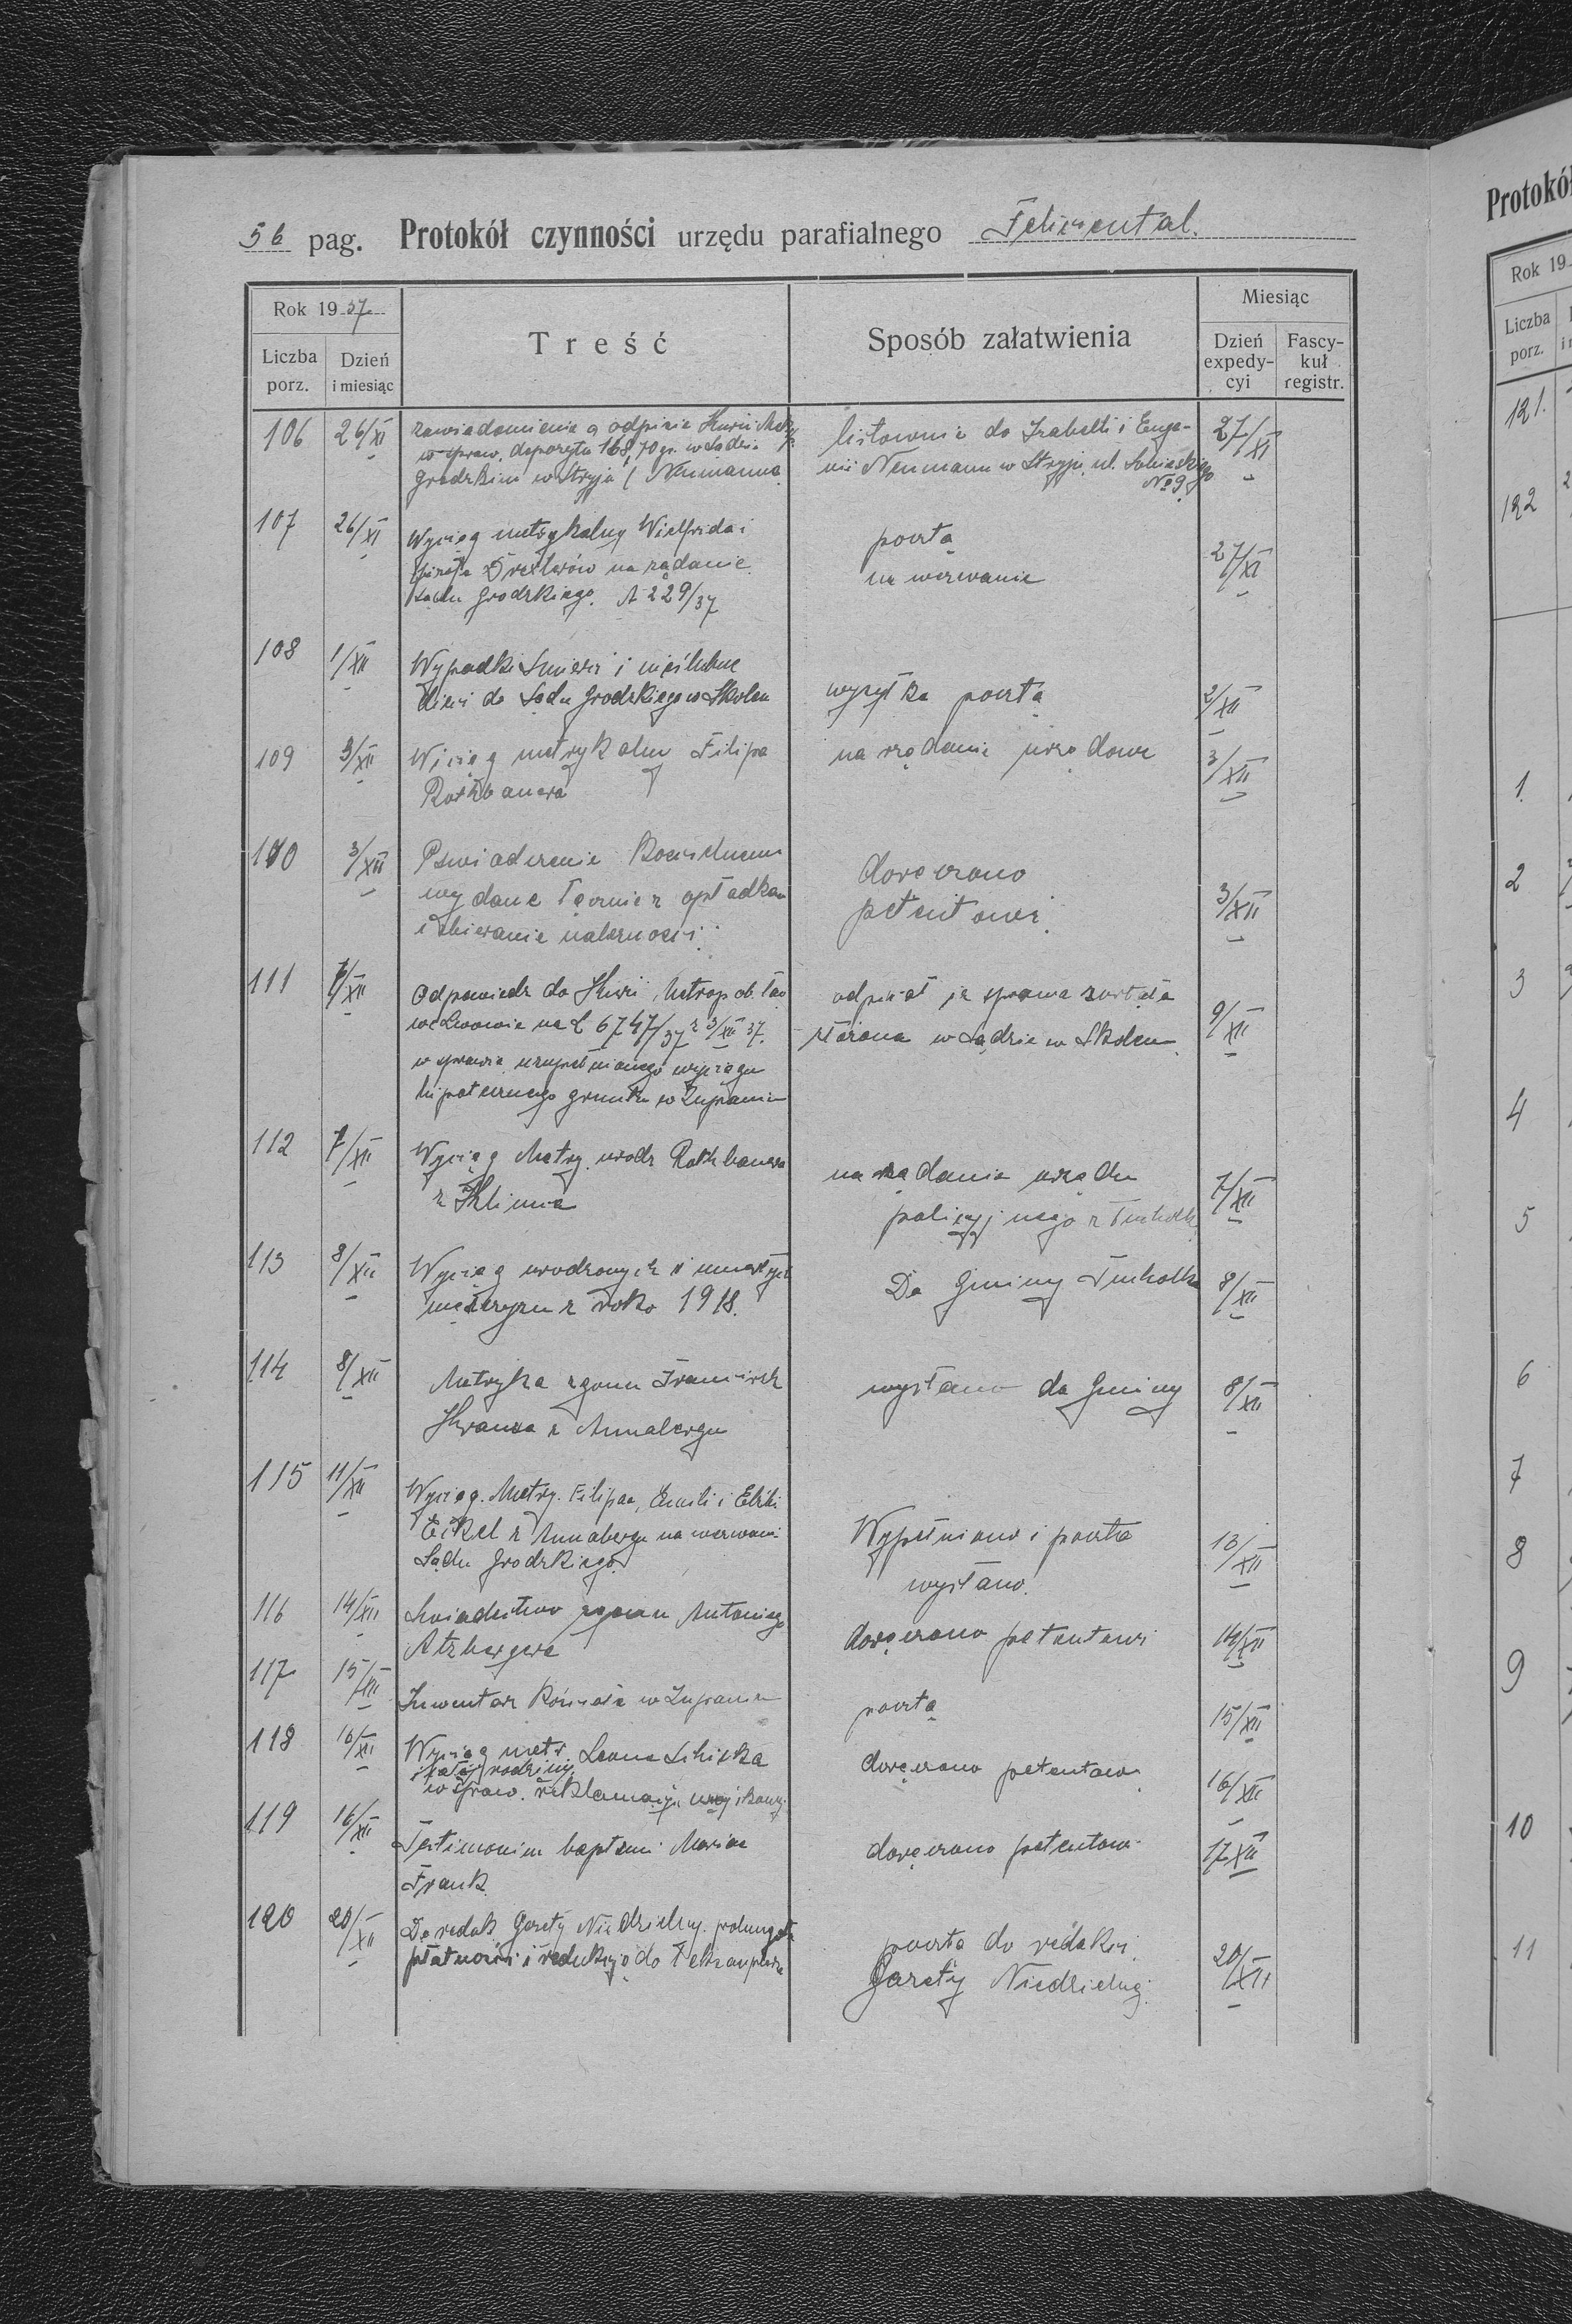 56 pag. Protokół czynności urzędu parafialnego Feliziental.
Rok 1937
Liczba porz.
Dzień i miesiąc
Treść
Sposób załatwienia
Miesiąc
Dzień expedycyi
Fascykuł registr.
106 26/XI zawiadomienie o odpisie Kurii Metr.
w spraw. depozytu 168,70 gr. w Sądzie
Grodzkim w Stryju ( Neumanna
listownie do Izabelli i Euge-
nii Neumann w Stryju, ul. Sobieskiego
№ 9
27/XI
107 26/XI Wyciąg metrykalny Wielfrida i
Drexlerów na żądanie
Sądu Grodzkiego. A 229/37
pocztą
na wezwanie
27/XI
108 1/XII Wypadki śmierci i nieślubne
dzieci do Sądu Grodzkiego w Skolem
wysyłka pocztą
2/XII
109 3/XII Wyciąg metrykalny Filipa
Rothbauera
na rządanie urzędowe
3/XII
110 3/XII
wydane łącznie z opłatkam
i zbieranie należności
doręczono
petentowi.
3/XII
111 7/XII Odpowiedź do Kurii Metrop. ob. łać
we Lwowie na L 6747/37 z 3/XII 37.
w sprawie uzupełnionego wyciągu
hipotecznego gruntu w Żupaniu
odpisał że sprawa została
złożona w Sądzie w Skolem
9/XII
112 7/XII Wyciąg Metry. urodz Rothbauera
z Klimca
na żądanie urzędu
policyjnego z Tucholk
7/XII
113 8/XII Wyciąg urodzonych i umarłych
mężczyzn z roko 1918.
Do Gminy Tucholka
8/XII
114 8/XII Metryka zgonu Franciszk
Krausa z Annabergu
wysłano do Gminy
8/XII
115 11/XII Wyciąg. Metry. Filipa, Emili i
Eikel z Annabergu na wezwani
Sądu Grodzkiego
Wypełniono i pocztą
wysłano.
13/XII
116 14/XII Świadectwo zgonu Antoniego
Atzbergera
doręczono petentowi
14/XII
117 15/XII Inwentarz Kościoła w Żupaniu
pocztą
15/XII
118 16/XII Wyciąg metr. Leona Schicka
i całej rodziny
w spraw. reklamacji wojskowej
doręczono petentow
16/XII
119 16/XII Testimonium baptismi Mariae
Frank
doręczono petentowi
17 XII
120 20/XII Do redak. Gazety Niedzielnej.
płatności i redukcję do 1 egzemplarz
pocztą do redakcji
Gazety Niedzielnej.
20/XII
Protokół
Rok 19
Liczba porz.
121.
122
1.
2
3
4
5
6
7
8
9
10
11